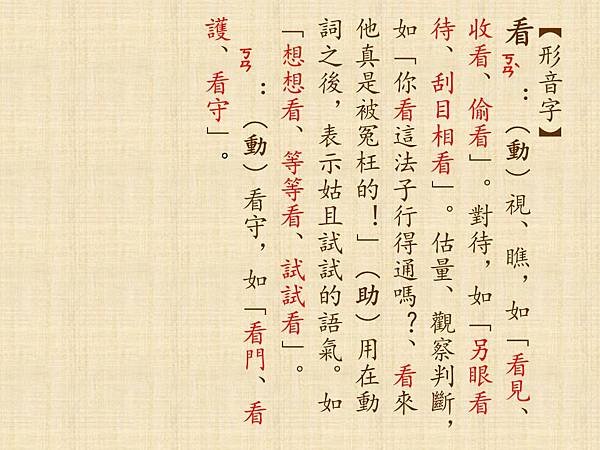 【形音字】
看ㄎㄢˋ：（動）視、瞧，如「看見、
收看、偷看」。對待，如「另眼看
待、刮目相看」。估量、觀察判斷，
如「你看這法子行得通嗎？、看來
他真是被冤枉的！」（助）用在動
詞之後，表示姑且試試的語氣。如
「想想看、等等看、試試看」。
ㄎㄢ：（動）看守，如「看門、看
護、看守」。